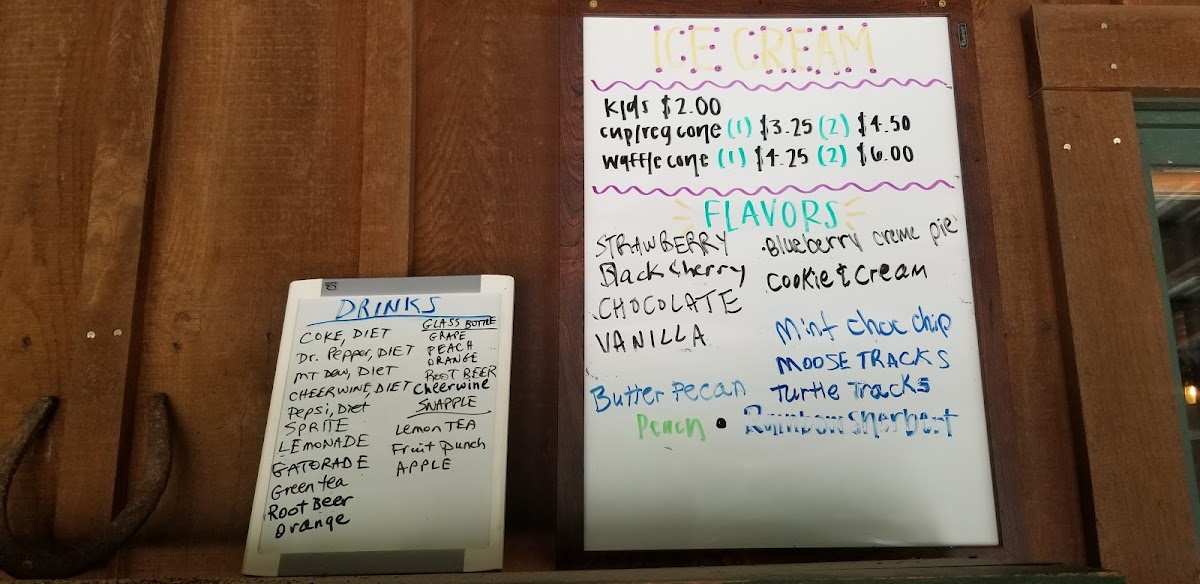 DRINKS
COKE, DIET
Dr. Pepper, DIET
MT Dew, DIET
CHEERWINE, DIET
Pepsi, Diet
SPRITE
LEMONADE
GATORADE
Green tea
Root Beer
Orange
GLASS BOTTLE
GRAPE
PEACH
ORANGE
ROOT BEER
Cheerwine
SNAPPLE
Lemon TEA
Fruit Punch
APPLE
ICE CREAM
Kids $2.00
cup/reg cone (1) $3.25 (2) $4.50
waffle cone (1) $4.25 (2) $6.00
FLAVORS
STRAWBERRY
Black Cherry
CHOCOLATE
VANILLA
Butter Pecan
Peach
Blueberry creme pie
Cookie & Cream
Mint choc chip
MOOSE TRACKS
Turtle Tracks
Rainbow Sherbert